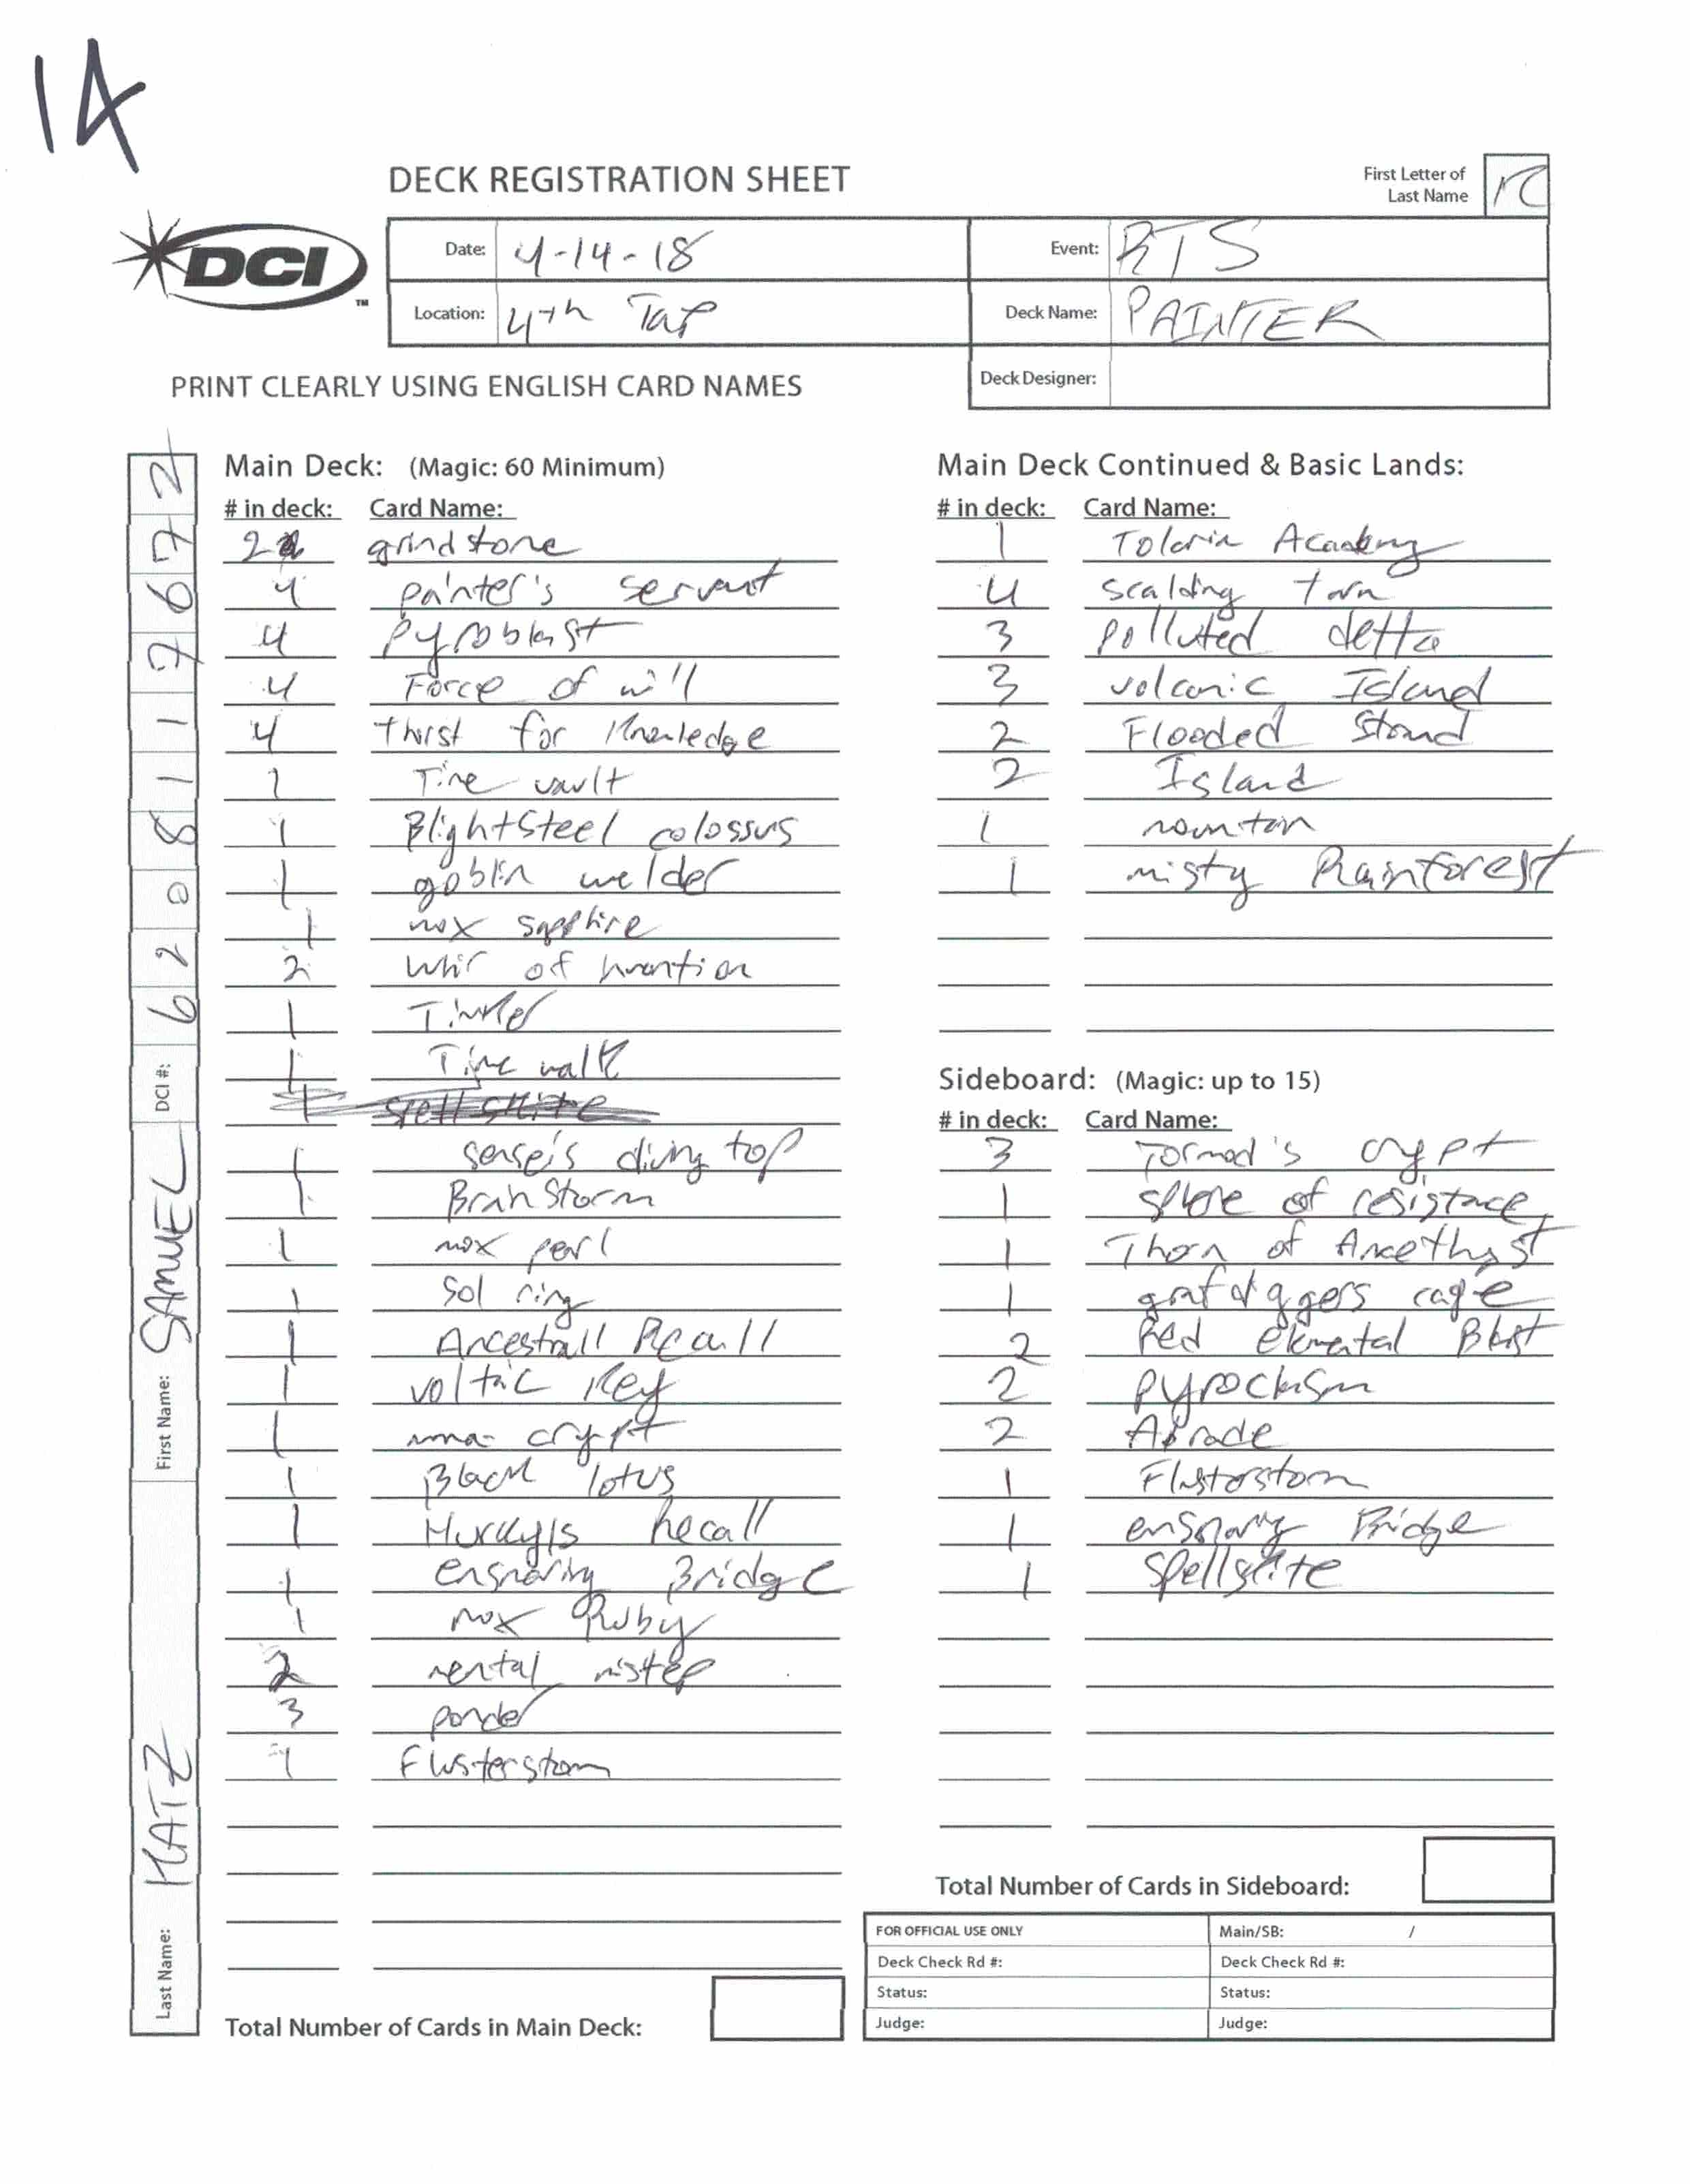 14
DECK REGISTRATION SHEET
First Letter of
Last Name
K
DCI
TM
Date: 4-14-18
Event: RTS
Location: 4th Tap
Deck Name: PAINTER
Deck Designer:
PRINT CLEARLY USING ENGLISH CARD NAMES
Last Name: KATZ First Name: SAMUEL DCI #: 6208117672
Main Deck: (Magic: 60 Minimum)
# in deck: Card Name:
2 grindstone
4 painter's servant
4 pyroblast
4 Force of will
4 thirst for knowledge
1 Time vault
1 Blightsteel colossus
1 goblin welder
1 mox sapphire
2 Whir of invention
1 Tinker
1 Time walk
1 spellskite
1 sensei's diving top
1 Brainstorm
1 mox perl
1 Sol ring
1 Ancestrall Recall
1 voltaic key
1 mna crypt
1 Black lotus
1 Hurkyls Recall
1 ensnaring Bridge
1 mox Ruby
2 mental mistep
3 ponder
1 Flusterstorm
Total Number of Cards in Main Deck:
Main Deck Continued & Basic Lands:
# in deck: Card Name:
1 Tolaria Academy
4 scalding tarn
3 polluted delta
3 volcanic Island
2 Flooded Strand
2 Island
1 mountain
1 misty Rainforest
Sideboard: (Magic: up to 15)
# in deck: Card Name:
3 Tormod's crypt
1 sphere of resistance
1 Thorn of Amethyst
1 grafdiggers cage
2 Red elemental Blast
2 pyroclasm
2 Abrade
1 Flusterstorm
1 ensnaring Bridge
1 Spellskite
Total Number of Cards in Sideboard:
FOR OFFICIAL USE ONLY Main/SB: /
Deck Check Rd #: Deck Check Rd #:
Status: Status:
Judge: Judge: